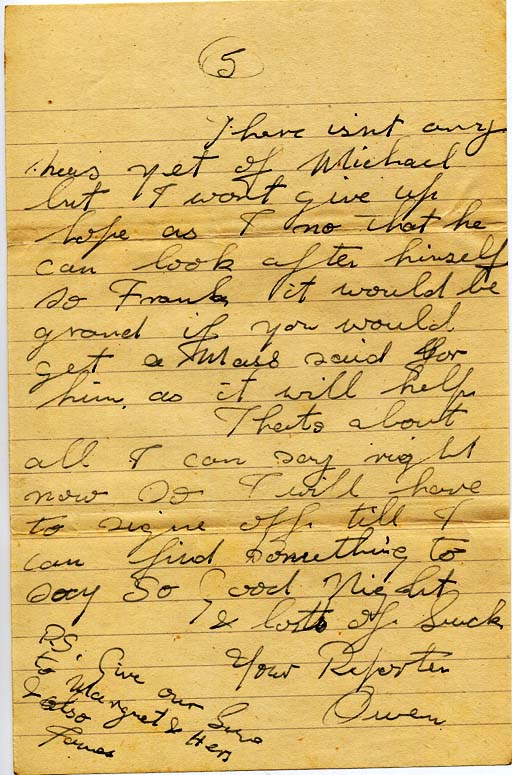 5
There isnt any
news yet of Michael
but I wont give up
hope as I no that he
can look after himself
so Frank it would be
grand if you would
get a Mass said for
him as it will help.
Thats about
all I can say right
now so I will have
to signe off till I
can find something to
say So Good Night
& lots of Luck
Your Reporter
Owen
P.S. Give our
to Margret & Hers
& also
James